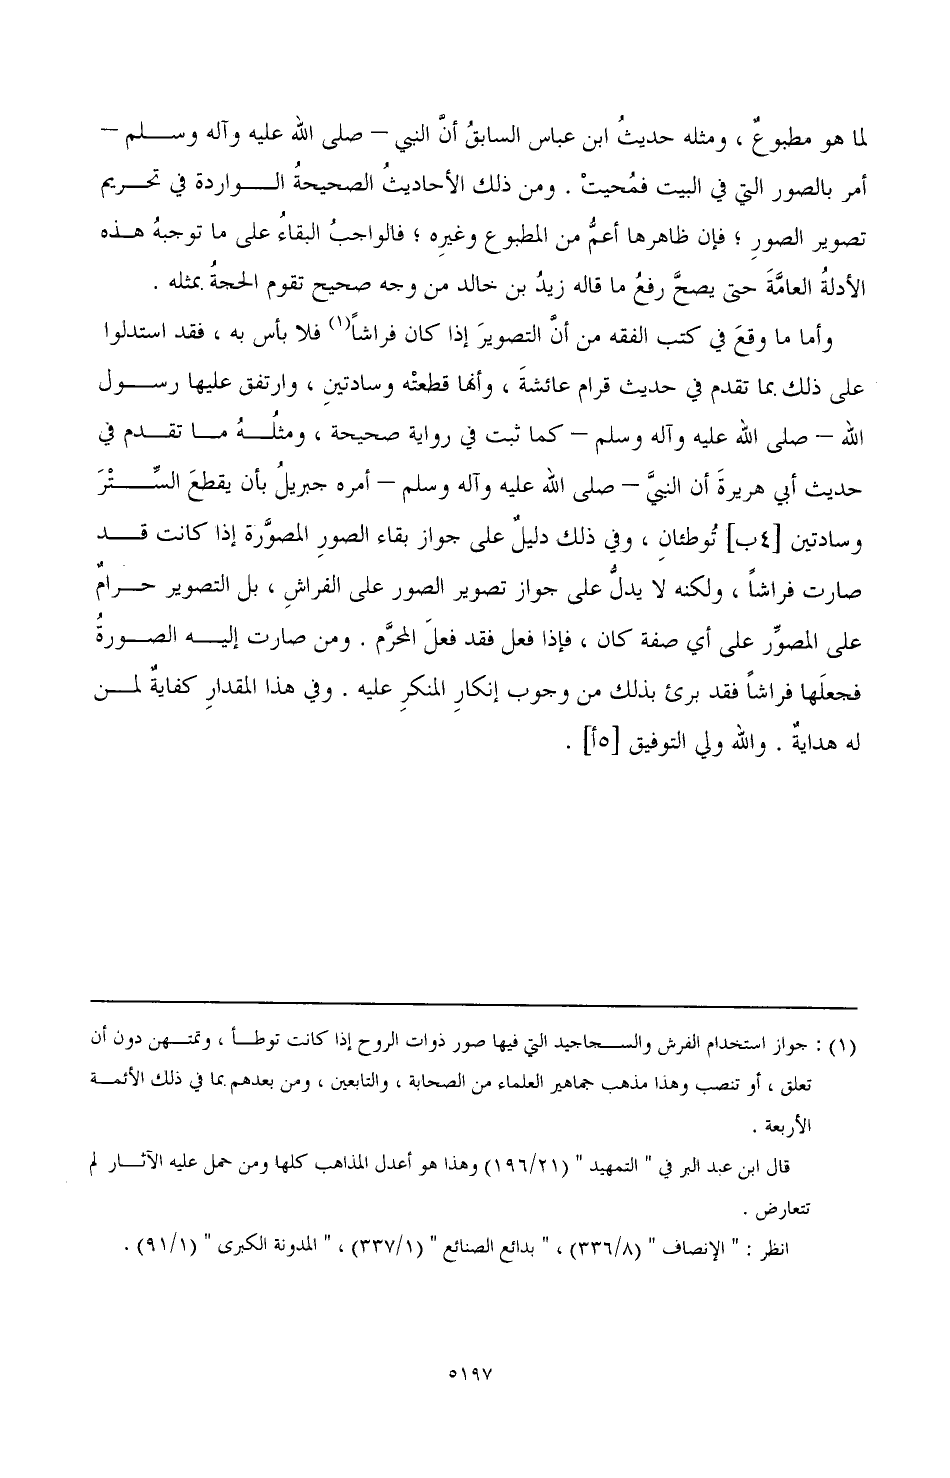 لما هو مطبوعٌ ، ومثله حديثُ ابن عباس السابقُ أنَّ النبي – صلى الله عليه وآله وسلم –
أمر بالصور التي في البيت فمُحيتْ . ومن ذلك الأحاديثُ الصحيحةُ الواردة في تحريم
تصوير الصورِ ؛ فإن ظاهرها أعمُّ من المطبوع وغيرِه ؛ فالواجبُ البقاءُ على ما توجبهُ هذه
الأدلةُ العامَّةَ حتى يصحَّ رفعُ ما قاله زيدُ بن خالد من وجه صحيح تقوم الحجةُ بمثله .
وأما ما وقعَ في كتب الفقه من أنَّ التصويرَ إذا كان فراشاً(١) فلا بأس به ، فقد استدلوا
على ذلك بما تقدم في حديث قرام عائشةَ ، وأنها قطعتْه وسادتينِ ، وارتفق عليها رسول
الله – صلى الله عليه وآله وسلم – كما ثبت في رواية صحيحة ، ومثلُهُ ما تقدم في
حديث أبي هريرةَ أن النبيَّ – صلى الله عليه وآله وسلم – أمره جبريلُ بأن يقطعَ السِّتْرَ
وسادتين [٤ب] تُوطئانِ ، وفي ذلك دليلٌ على جواز بقاء الصورِ المصوَّرة إذا كانت قد
صارت فراشاً ، ولكنه لا يدلُّ على جواز تصوير الصور على الفراشِ ، بل التصوير حرامٌ
على المصوِّر على أي صفة كان ، فإذا فعل فقد فعلَ المحرَّم . ومن صارت إليه الصورةُ
فجعلَها فراشاً فقد برئ بذلك من وجوب إنكارِ المنكرِ عليه . وفي هذا المقدارِ كفايةٌ لمن
له هدايةٌ . والله ولي التوفيق [٥أ] .
(١) : جواز استخدام الفرش والسجاجيد التي فيها صور ذوات الروح إذا كانت توطأ ، وتمتهن دون أن
تعلق ، أو تنصب وهذا مذهب جماهير العلماء من الصحابة ، والتابعين ، ومن بعدهم بما في ذلك الأئمة
الأربعة .
قال ابن عبد البر في " التمهيد " (١٩٦/٢١) وهذا هو أعدل المذاهب كلها ومن حمل عليه الآثار لم
تتعارض .
انظر : " الإنصاف " (٣٣٦/٨) ، " بدائع الصنائع " (٣٣٧/١) ، " المدونة الكبرى " (٩١/١) .
٥١٩٧